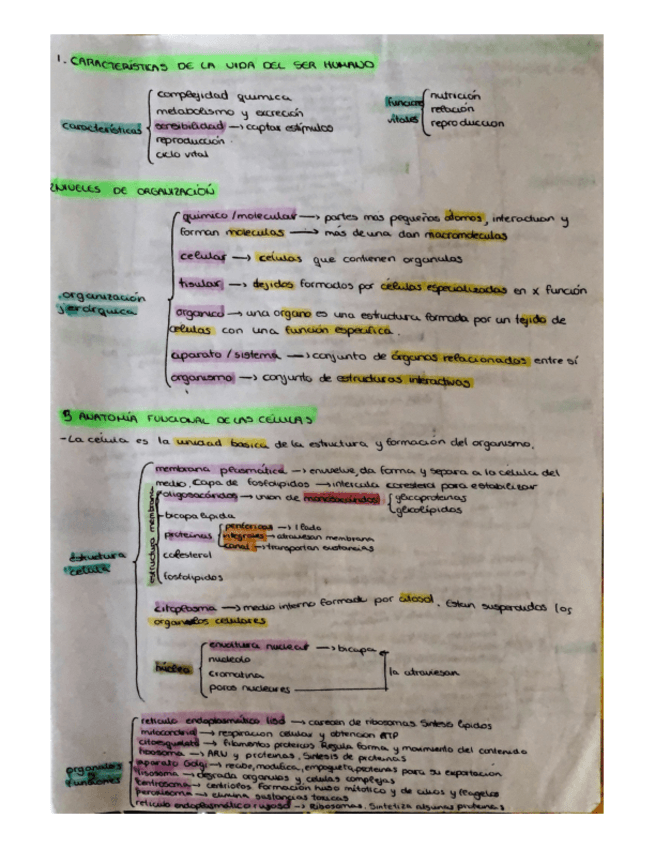 1. CARACTERÍSTICAS DE LA VIDA DEL SER HUMANO
características
complejidad química
metabolismo y excreción
sensibilidad → captar estímulos
reproducción
ciclo vital
funciones vitales
nutrición
relación
reproduccion
2 NIVELES DE ORGANIZACIÓN
organización jerárquica
químico/molecular → partes mas pequeñas átomos, interactuan y
forman moleculas → más de una dan macromoleculas
celular → células que contienen organulas
tisular → tejidos formados por células especializadas en x función
organico → una organo es una estructura formada por un tejido de
celulas con una función especifica.
aparato/sistema → conjunto de órganos relacionados entre sí
organismo → conjunto de estructuras interactivas
3 ANATOMÍA FUNCIONAL DE LAS CÉLULAS
- La célula es la unidad basica de la estructura y formación del organismo.
estructura celula
membrana plasmática → envuelve, da forma y separa a la celula del
medio. Capa de fosfolipidos → intercala coresterol para estabilizar
estructura membrana
oligosacáridos → union de monosacáridos
glicoproteinas
glicolípidos
bicapa lipida
proteinas
perifericas → 1 lado
integrales → atraviesan membrana
canal → transportan sustancias
colesterol
fosfolipidos
citoplasma → medio interno formado por citosol. Estan suspendidos los
organelos celulares
núcleo
envoltura nuclear → bicapa
nucleolo
cromatina
poros nucleares
la atraviesan
organulos y funciones
reticulo endoplasmático liso → carecen de ribosomas. Sintesis lipidos
mitocondria → respiracion celular y obtencion ATP
citoesqueleto → filamentos proteicos Regula forma y movimiento del contenido
ribosoma → ARN y proteinas. Sintesis de proteinas
aparato Golgi → recibe, modifica, empaqueta proteinas para su exportacion
lisosoma → degrada organulos y celulas complejas
centrosoma → centriolos. Formación huso mitotico y de cilios y flagelos
peroxisoma → elimina sustancias toxicas
reticulo endoplasmático rugoso → Ribosomas. Sintetiza algunas proteinas